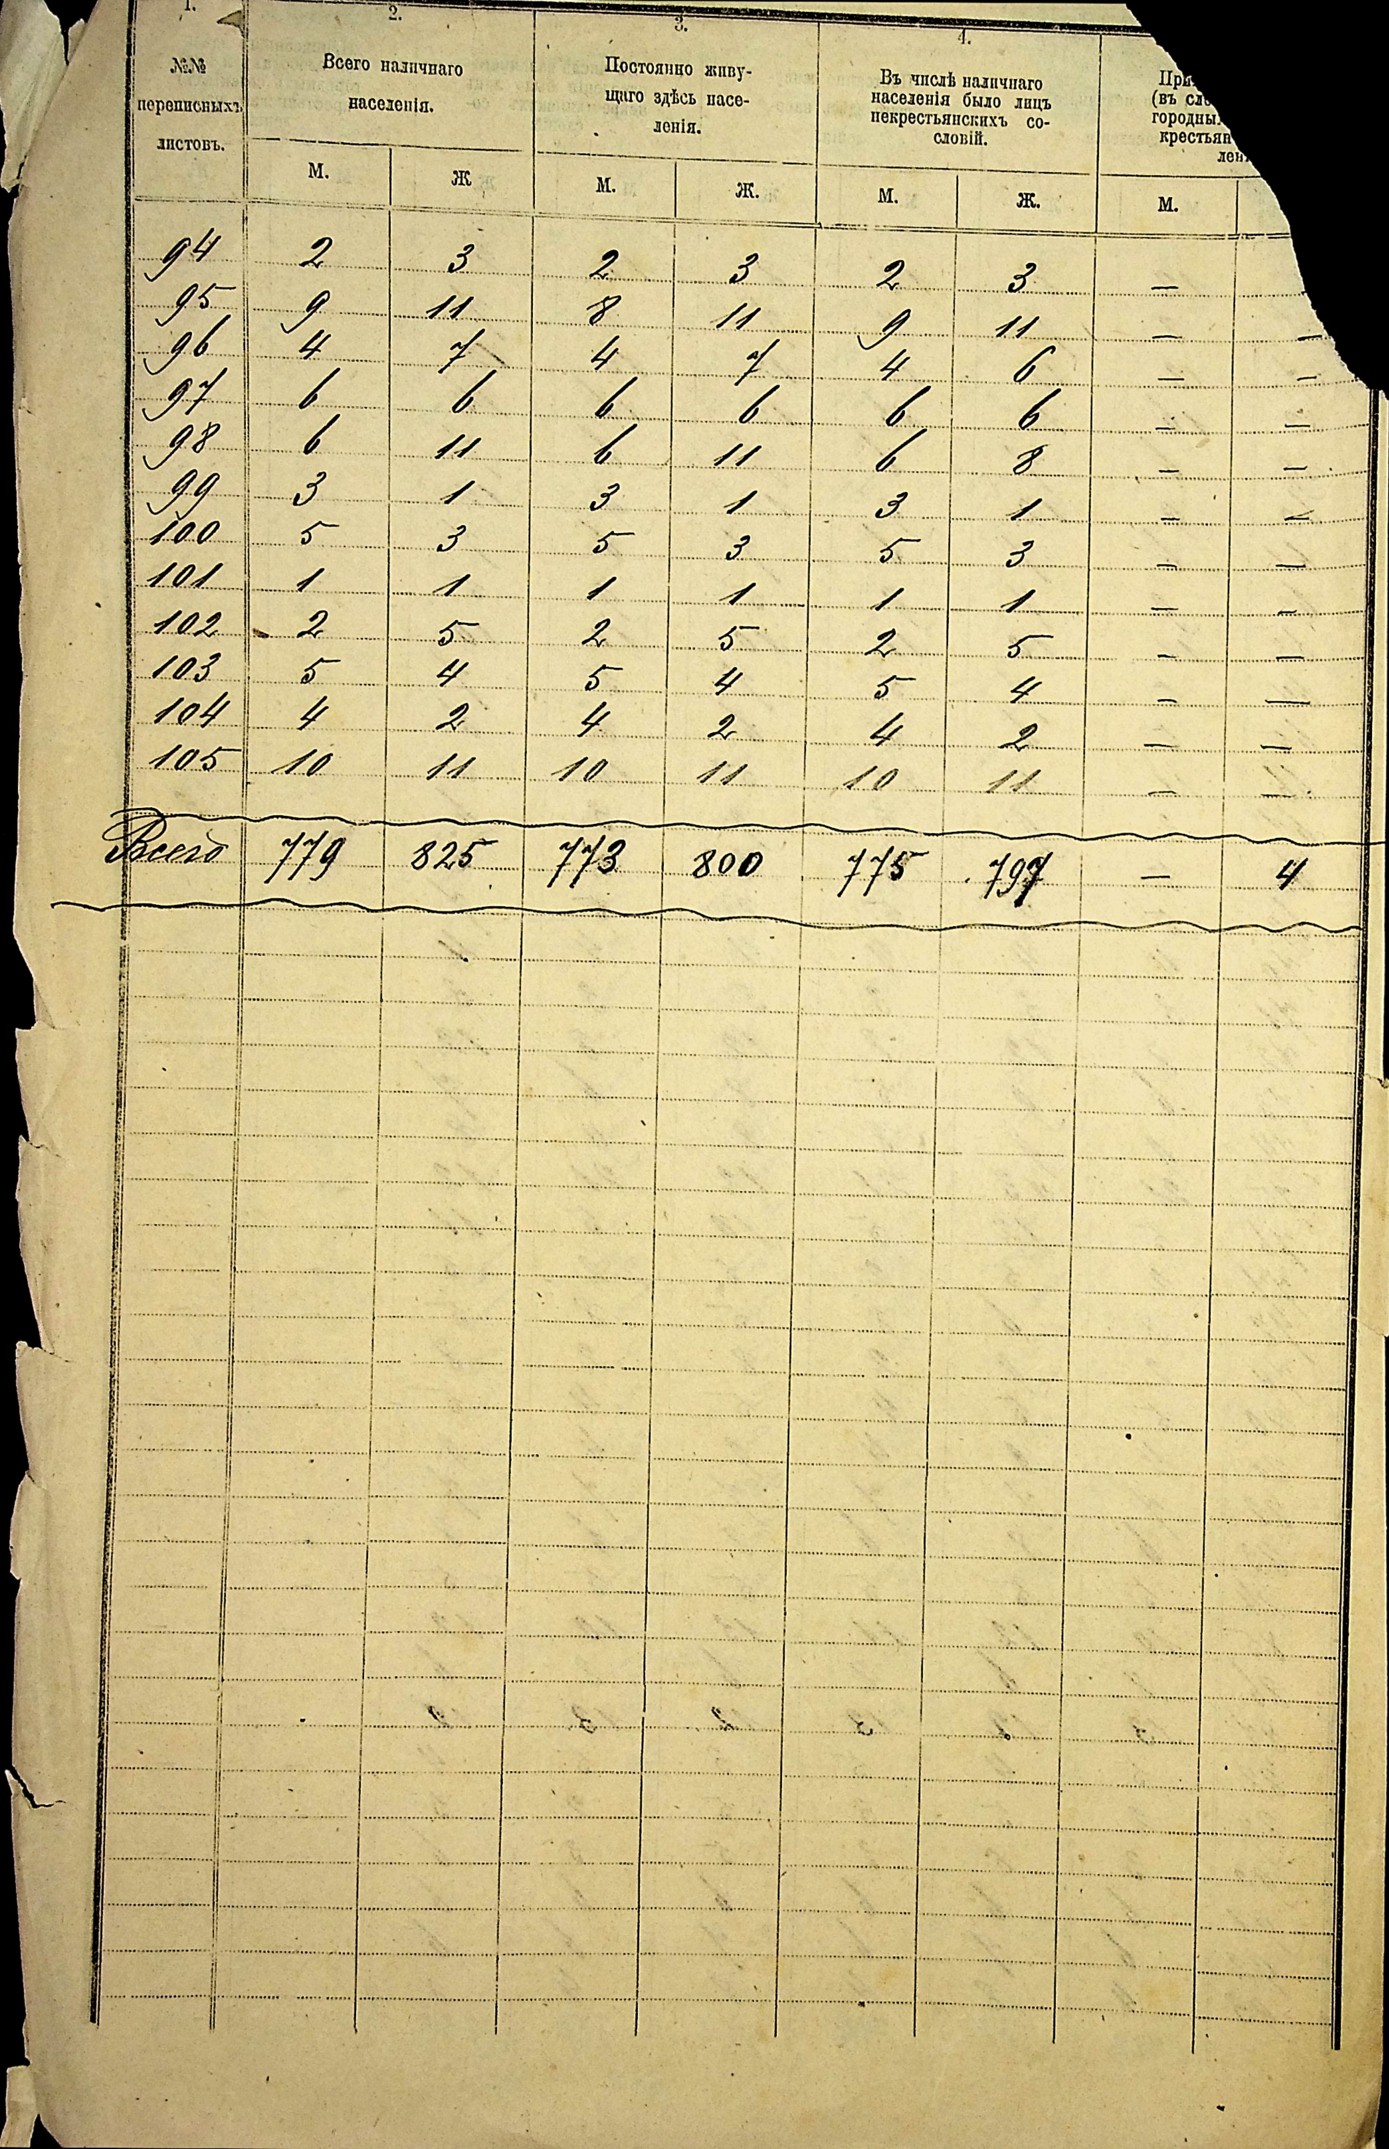 1. 2. 3. 4.
№№ переписныхъ листовъ.
Всего наличнаго населенія.
Постоянно живу-
щаго здѣсь насе-
ленія.
Въ числѣ наличнаго
населенія было лицъ
некрестьянскихъ со-
словій.
При
(въ сло
городны
крестьян
лен
М. Ж М. Ж. М. Ж. М.
94 2 3 2 3 2 3 —
95 9 11 8 11 9 11 — —
96 4 7 4 7 4 6 — —
97 6 6 6 6 6 6 — —
98 6 11 6 11 6 8 — —
99 3 1 3 1 3 1 — —
100 5 3 5 3 5 3 — —
101 1 1 1 1 1 1 — —
102 2 5 2 5 2 5 — —
103 5 4 5 4 5 4 — —
104 4 2 4 2 4 2 — —
105 10 11 10 11 10 11 — —
Всего 779 825 773 800 775 797 — 4